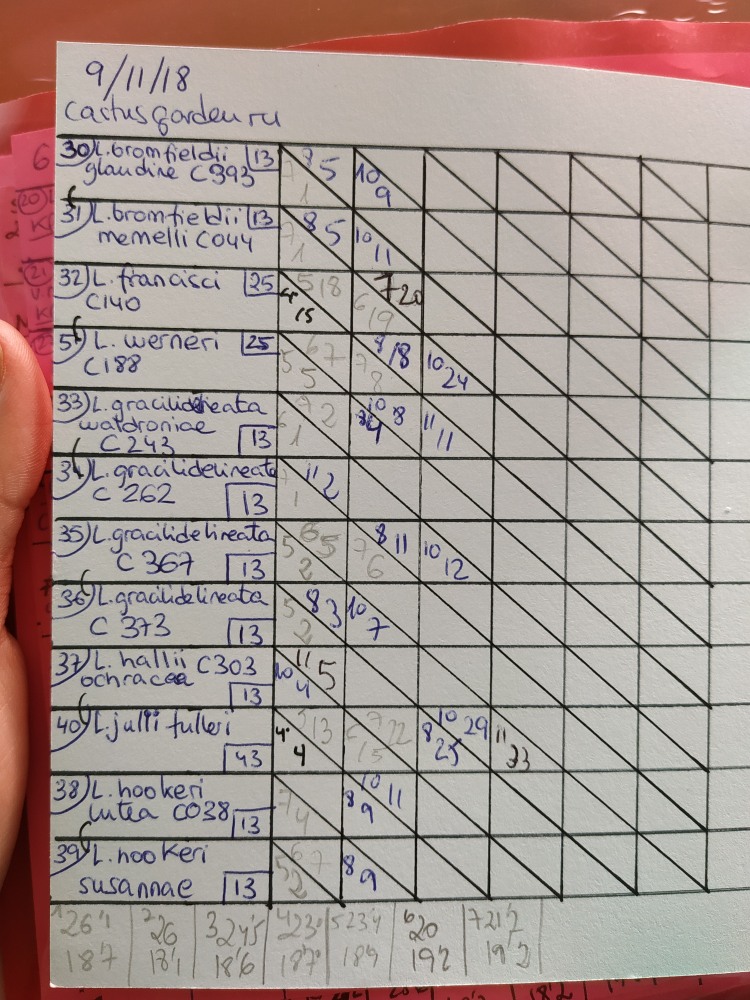 9/11/18
cactusgarden ru
30) L. bromfieldii 13 7 1 8 5 10 9
glaudine C393
31) L. bromfieldii 13 7 1 8 5 10 11
memelli C044
32) L. francisci 25 4 15 5 18 6 19 7 20
C140
5) L. werneri 25 5 5 6 7 7 8 8 18 10 24
C188
33) L. gracilidelineata 6 1 7 2 4 10 8 11 11
waldroniae
C243 13
34) L. gracilidelineata 1 11 2
C 262 13
35) L. gracilidelineata 5 2 6 5 7 6 8 11 10 12
C 367 13
36) L. gracilidelineata 5 2 8 3 10 7
C 373 13
37) L. hallii C303 10 4 11 5
ochracea 13
40) L. julii fulleri 4 4 5 13 6 15 7 22 8 25 10 29 11 33
43
38) L. hookeri 7 4 8 9 10 11
lutea C038 13
39) L. hookeri 5 2 6 7 8 9
susannae 13
1 26'1 2 26 3 24'5 4 23 5 23'4 6 20 7 21'2
18'7 18'1 18'6 18'7 18'9 19'2 19'2